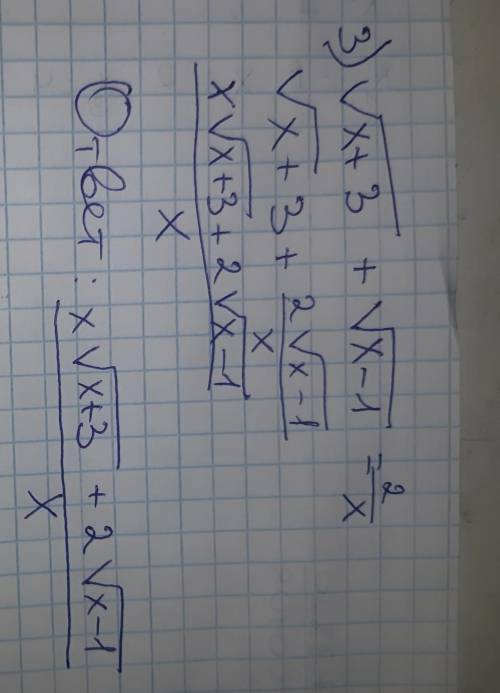 3) √x+3 + √x-1 = 2/x
√x + 3 + 2√x-1/x
x√x+3 + 2√x-1/x
Ответ: x√x+3 + 2√x-1/x